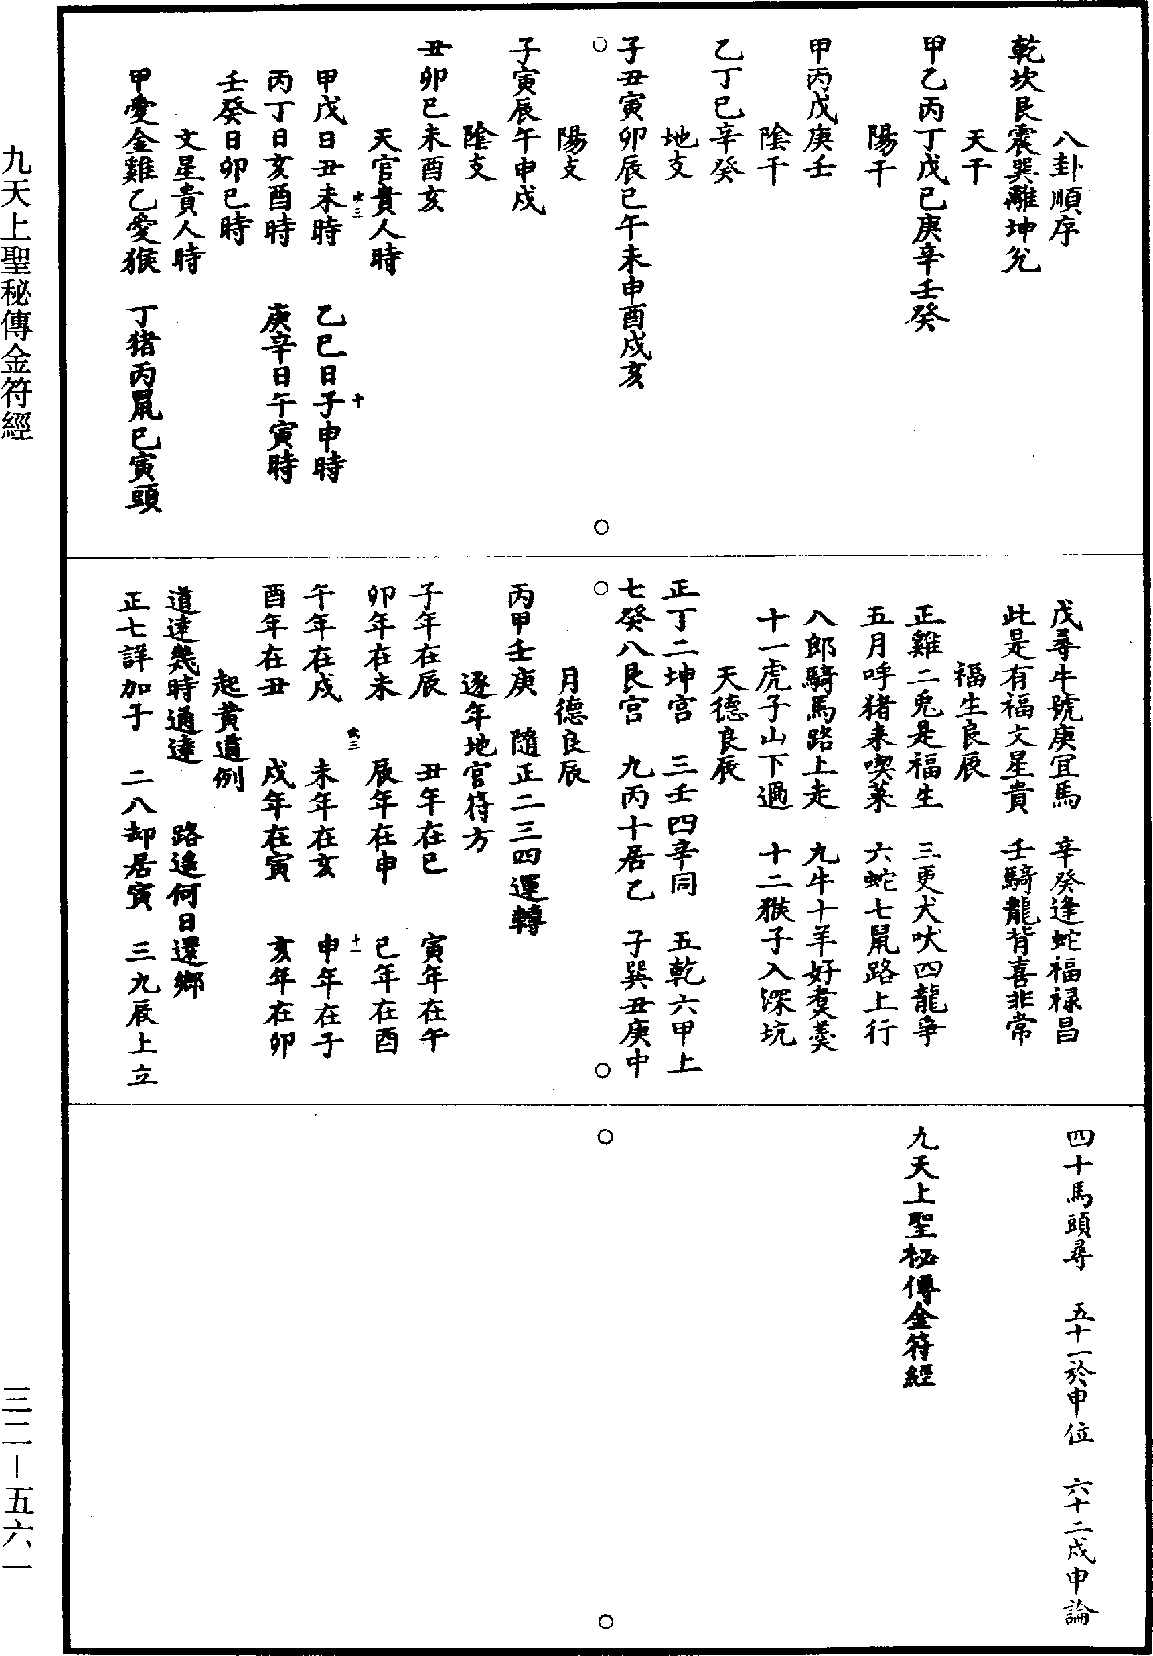 八卦順序
乾坎艮震巽離坤兌
天干
甲乙丙丁戊己庚辛壬癸
陽干
甲丙戊庚壬
陰干
乙丁巳辛癸
地支
子丑寅卯辰巳午未申酉戌亥
陽支
子寅辰午申戌
陰支
丑卯巳未酉亥
天官貴人時
甲戊日丑未時 乙巳日子申時
丙丁日亥酉時 庚辛日午寅時
壬癸日卯巳時
文星貴人時
甲愛金雞乙愛猴 丁猪丙鼠巳寅頭
戊尋牛號庚宜馬 辛癸逢蛇福祿昌
此是有福文星貴 壬騎龍背喜非常
福生良辰
正雞二兎是福生 三更犬吠四龍爭
五月呼猪来喫菜 六蛇七鼠路上行
八郎騎馬路上走 九牛十羊好煑羮
十一虎子山下過 十二猴子入深坑
天德良辰
正丁二坤宮 三壬四辛同 五乾六甲上
七癸八艮宮 九丙十居乙 子巽丑庚中
月德良辰
丙甲壬庚 隨正二三四運轉
逐年地官符方
子年在辰 丑年在巳 寅年在午
卯年在未 辰年在申 巳年在酉
午年在戌 未年在亥 申年在子
酉年在丑 戌年在寅 亥年在卯
起黃道例
道遠幾時通達 路遙何日還鄉
正七詳加子 二八却居寅 三九辰上立
四十馬頭尋 五十一於申位 六十二戌申論
九天上聖秘傳金符經
九天上聖秘傳金符經
三二－五六一